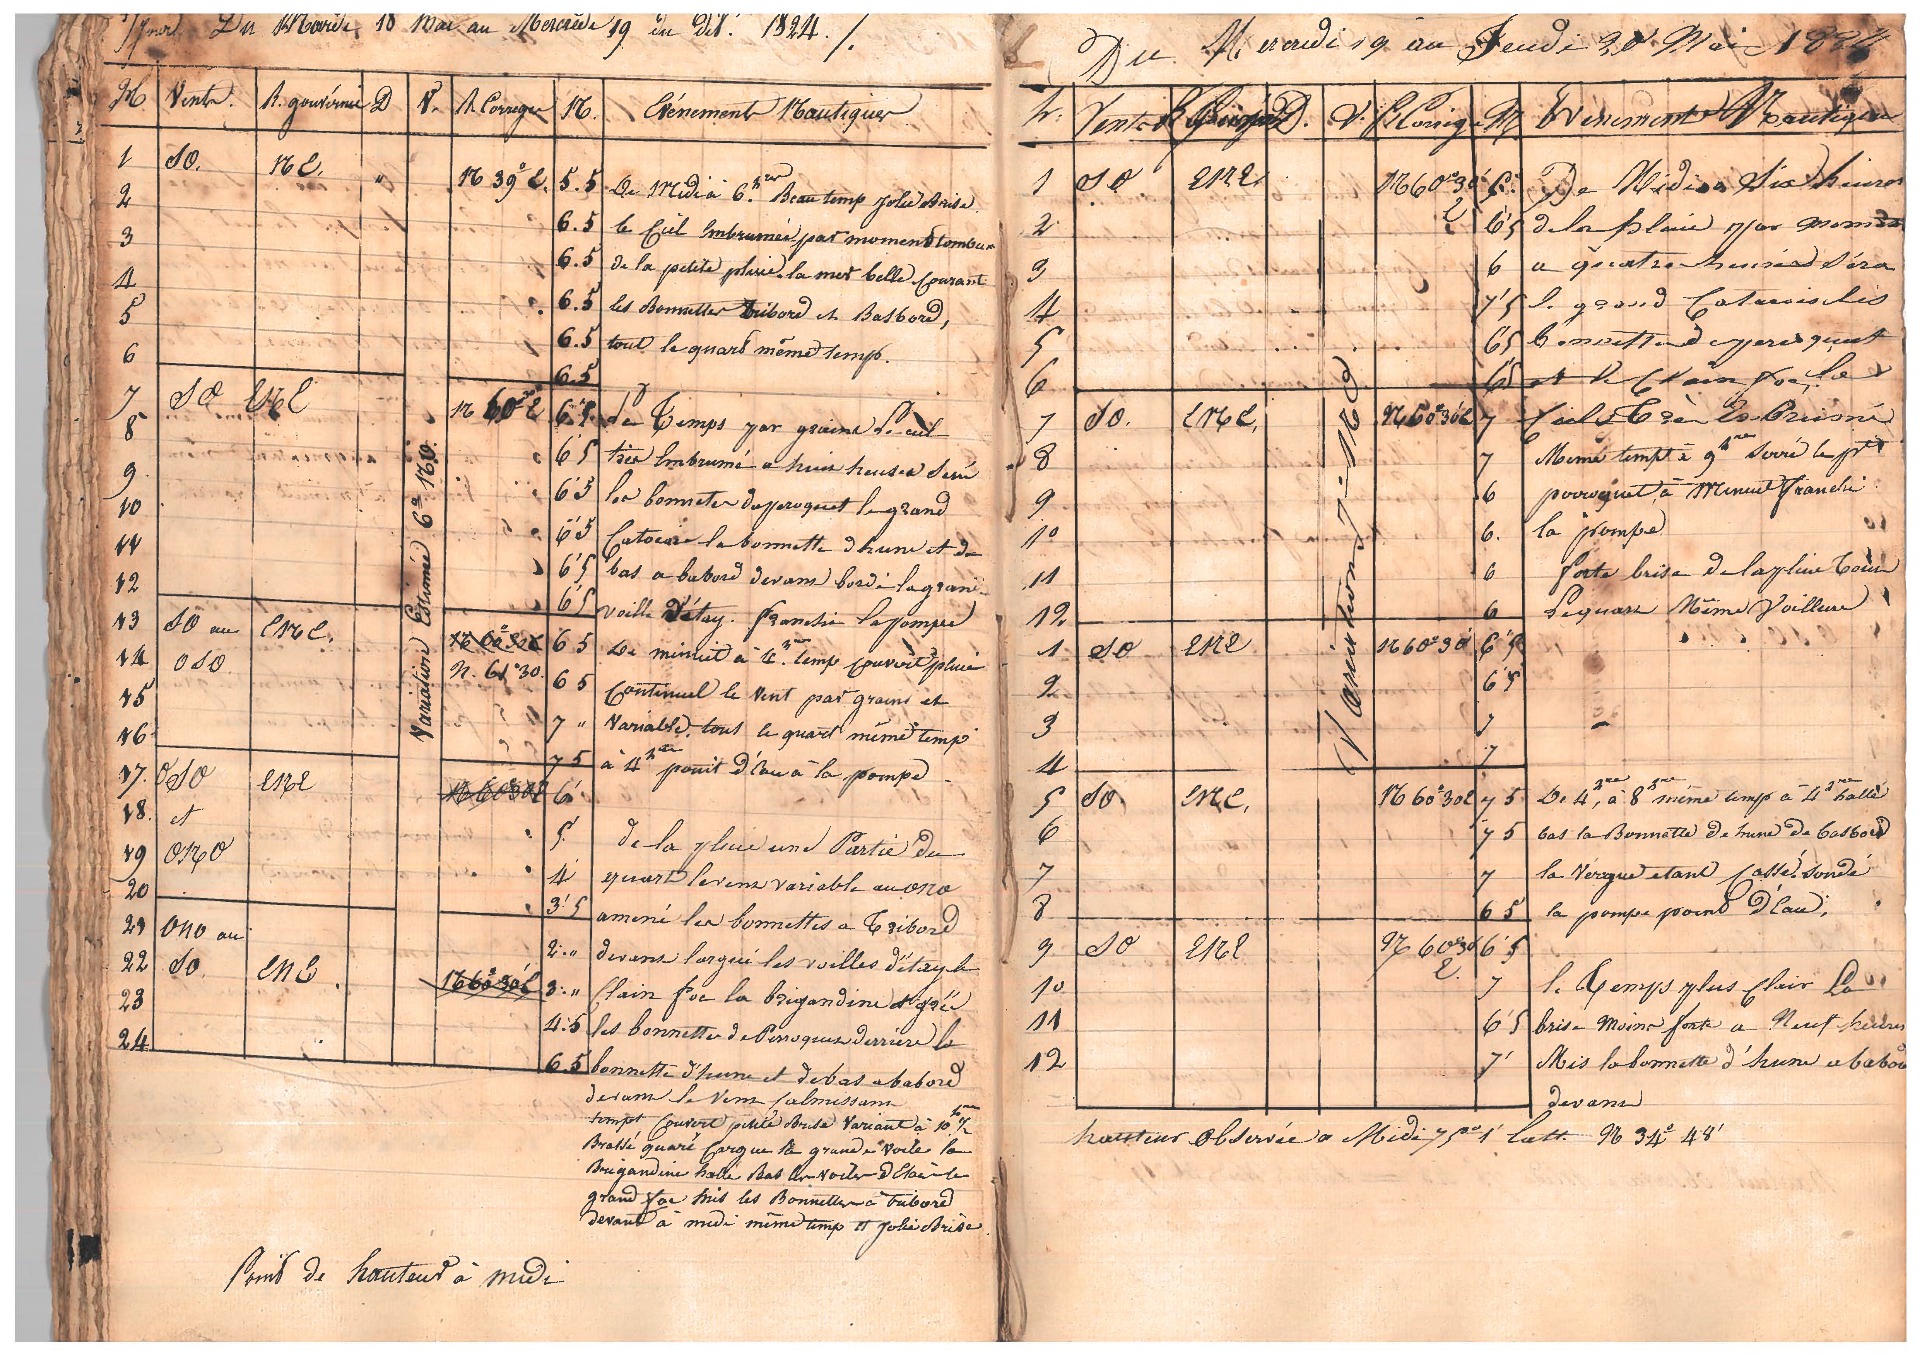 Du Mardi 18 Mai au Mercredi 19 du dit. 1824.
H Vents. R. gouvérnée D V. R Corregee N. Evénements Nautiques
1 SO. NE. " N 39° E. 5.5 De Midi à 6 hres Beau temp jolie Brise
2 6.5 le Ciel Embrumée par moment tombée
3 6.5 de la petite pluie la mer belle Courant
4 6.5 les Bonnettes Tribord et Basbord,
5 6.5 tout le quart même temp.
6 6.5
7 SO ENE N 60° E 6.5 Le Temps par grains Le ciel
8 6'5 tres Embrumé a huit heures Serré
9 6'5 les bonnetes de peroquet le grand
10 6'5 Catacoie la bonnette d'hune et de
11 6'5 bas a babord devant bordé la grand
12 6'5 voille d'étay. franchi la pompe
Variation Estimée 6° NO.
13 SO au ENE. N 60° 30 E 6 5 De minuit à 4 h. temp couvert pluie
14 OSO. N. 61° 30. 6 5 Continuel le Vent par grains et
15 7 " Variable. tout le quart même temp
16 7 5 à 4 hres point d'Eau à la pompe
17. OSO ENE N 60° 30 E 6'
18. et 5' de la pluie une Partie du
19 ONO 4' quart le vent variable au ONO
20 3'5 amené les bonnettes a Tribord
21 ONO au 2." devant largué les voilles d'étay le
22 SO. ENE. N 60° 30' E 3." Clain foc la brigandine et gréé
23 4.5 les bonnettes de Perroquet derriere la
24 6.5 bonnette d'hune et de bas a babord
devant le Vent Calmissant
tempt Couvert petite Brise Variant à 10 hres ½
Brassé quaré Cargue la grande Voile la
Brigandine halle Bas les voiles d'Etai le
grand foc Mis les Bonnettes à tribord
devant à midi même temp et jolie Brise
Point de hauteur à midi
Du Mercredi 19 au Jeudi 20 Mai 1824
h. Vents R D. V. R Corrig N Evenements Nautiques
1 SO ENE N 60° 30' E 6' De Midi a Six heures
2 6'5 de la pluie par moment
3 6 a quatre heures Séra
4 7'5 le grand Catacois les
5 6'5 bonnette de peroquet
6 6'5 et le Clain foc, le
7 SO. ENE. N 60° 30 E 7 Ciel Très Enbrumé
8 7 Meme tempt à 9 hres serré le ptt
9 6 perroquet à Minuit franchi
10 6. la pompe
11 6 forte brise de la pluie Tout
12. 6 Le quart Même Voillure
Variation
1 SO ENE N 60° 30' 6'5
2 6'5
3 7
4 7
5 SO ENE. N 60° 30 E 7 5 De 4 hres à 8 hres même temp à 4 hres hallé
6 7 5 bas la Bonnette de hune de basbord
7 7 la Vérgue etant Cassé. sondé
8 6 5 la pompe point d'Eau.
9 SO ENE N 60° 30 E. 6'5
10 7 le Temps plus Clair La
11 6'5 brise Moins forte a Neuf heures
12 7' Mis la bonnette d'hune a babord
devant
hauteur Observée a Midi 75° 1' Latt. N 34° 48'